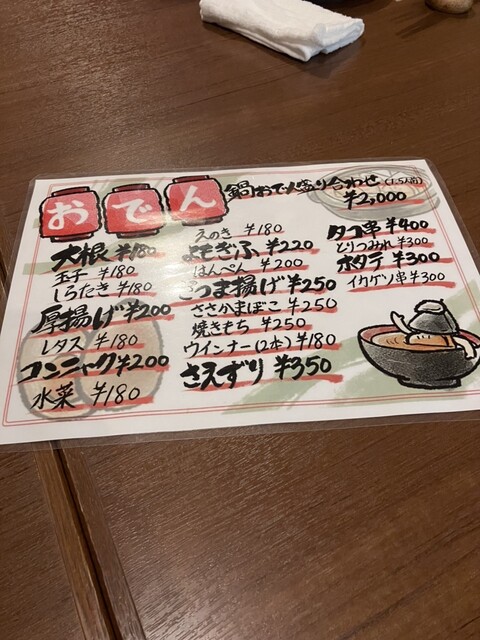 おでん
鍋おでん盛り合わせ(1.5人前)
¥2,000
大根 ¥180
玉子 ¥180
しらたき ¥180
厚揚げ ¥200
レタス ¥180
コンニャク ¥200
水菜 ¥180
えのき ¥180
よもぎふ ¥220
はんぺん ¥200
さつま揚げ ¥250
ささかまぼこ ¥250
焼きもち ¥250
ウインナー(2本) ¥180
さえずり ¥350
タコ串 ¥400
とりつみれ ¥300
ホタテ ¥300
イカゲソ串 ¥300